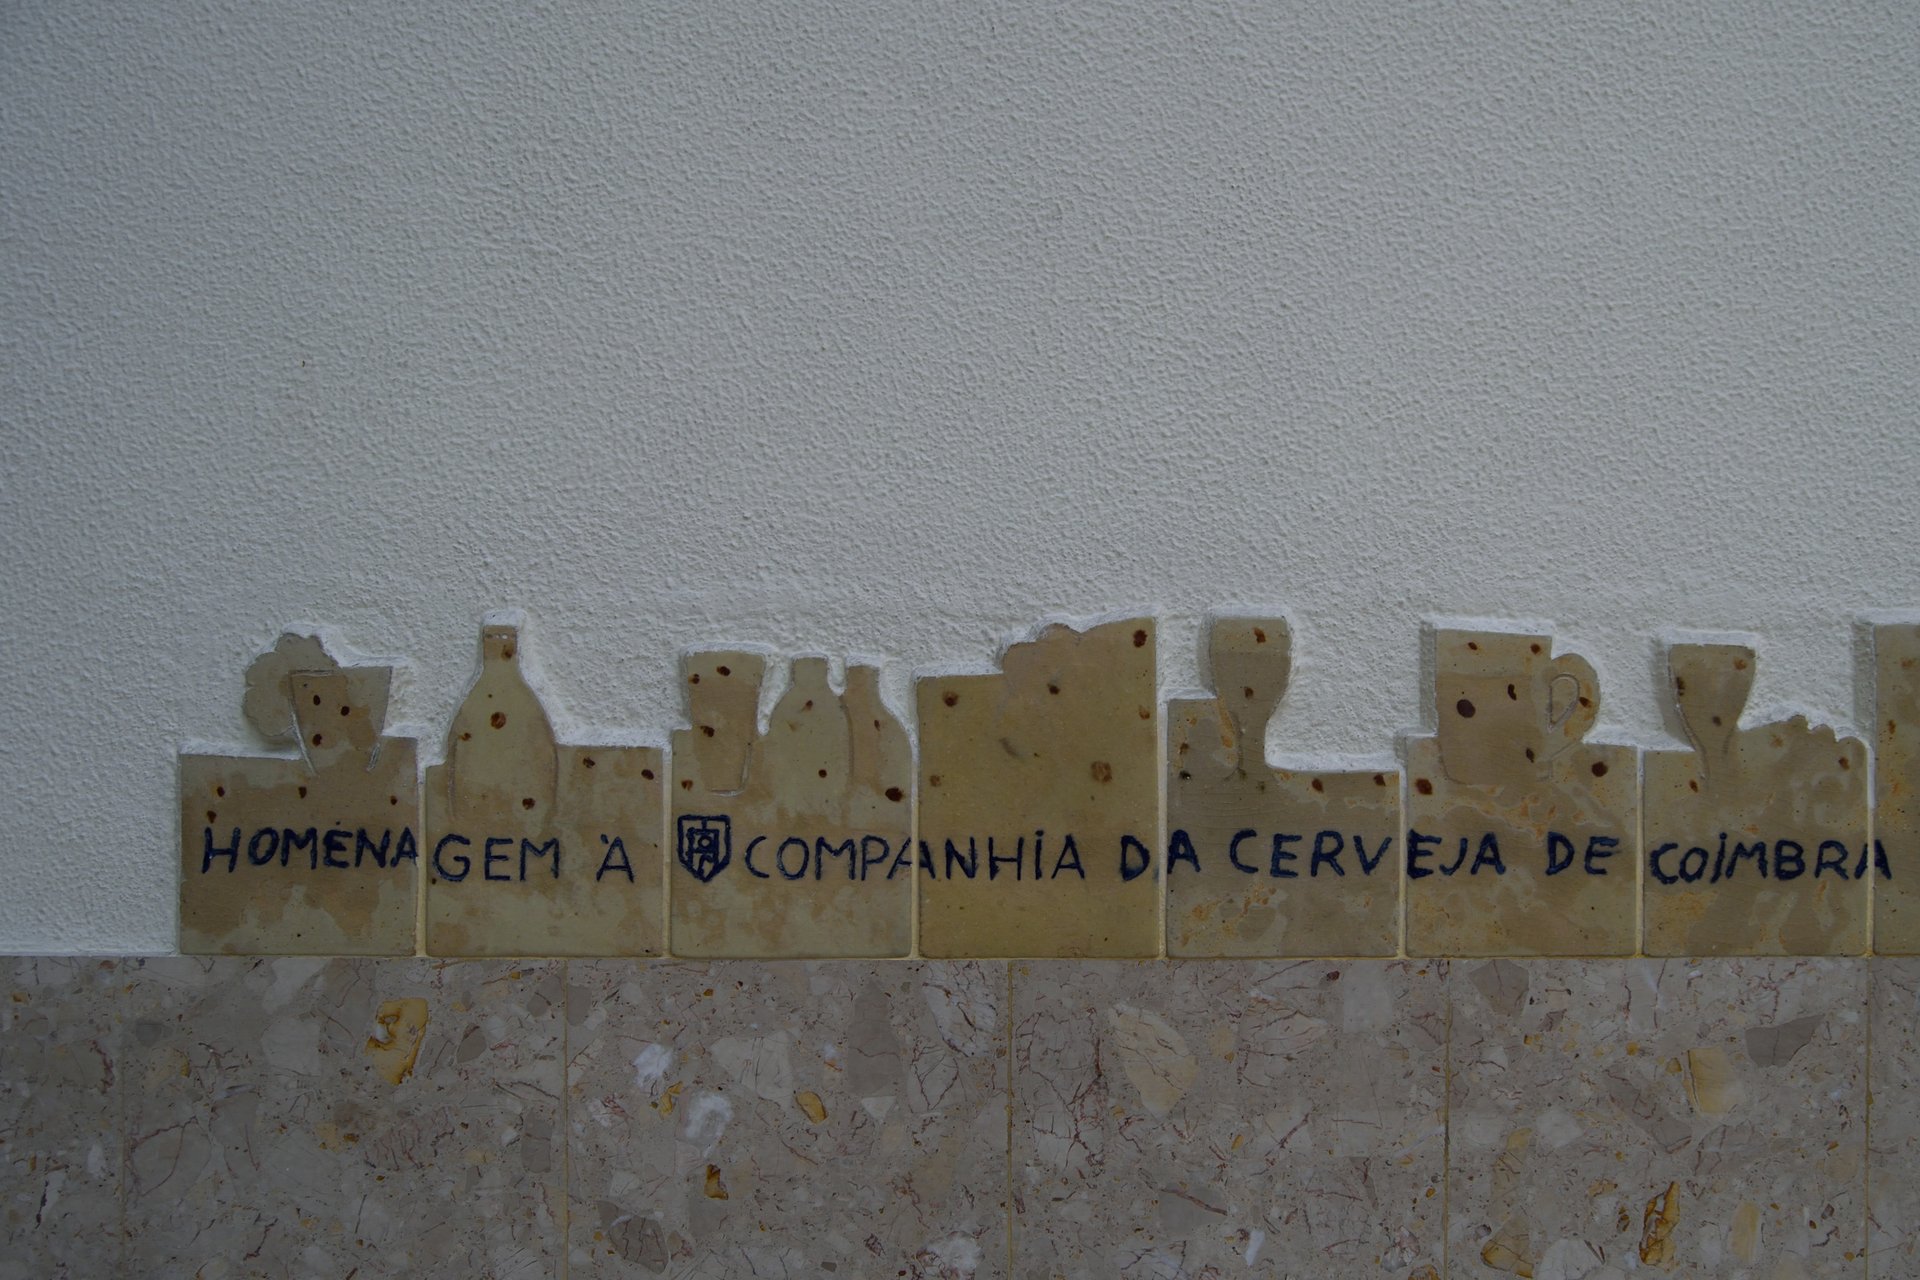 HOMENAGEM À COMPANHIA DA CERVEJA DE COIMBRA